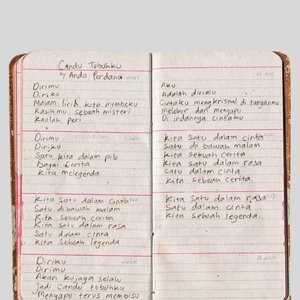 Candu Tubuhku
by Anda Perdana
Dirimu
Diriku
Malam lirih kita membeku
Kasihmu sebuah misteri
Kaulah peri
Dirimu
Diriku
Satu kita dalam
Bagai cerita
Kita melegenda
Kita Satu dalam cinta
Satu di bawah malam
Kita sebuah cerita
Kita Satu dalam rasa
Satu dalam cinta
Kita sebuah legenda
Diriku
Dirimu
Akan kujaga selalu
Jadi Candu tubuhku
Mengapa terus membisu
Aku
Adalah dirimu
Cintaku mengkristal di tanganmu
Melebur dan menyapu
Di indahnya cintamu
Kita Satu dalam cinta
Satu di bawah malam
Kita sebuah cerita
Kita satu dalam rasa
Satu dalam cinta
Kita sebuah cerita
Kita Satu dalam rasa
Satu dalam cinta
Kita sebuah legenda